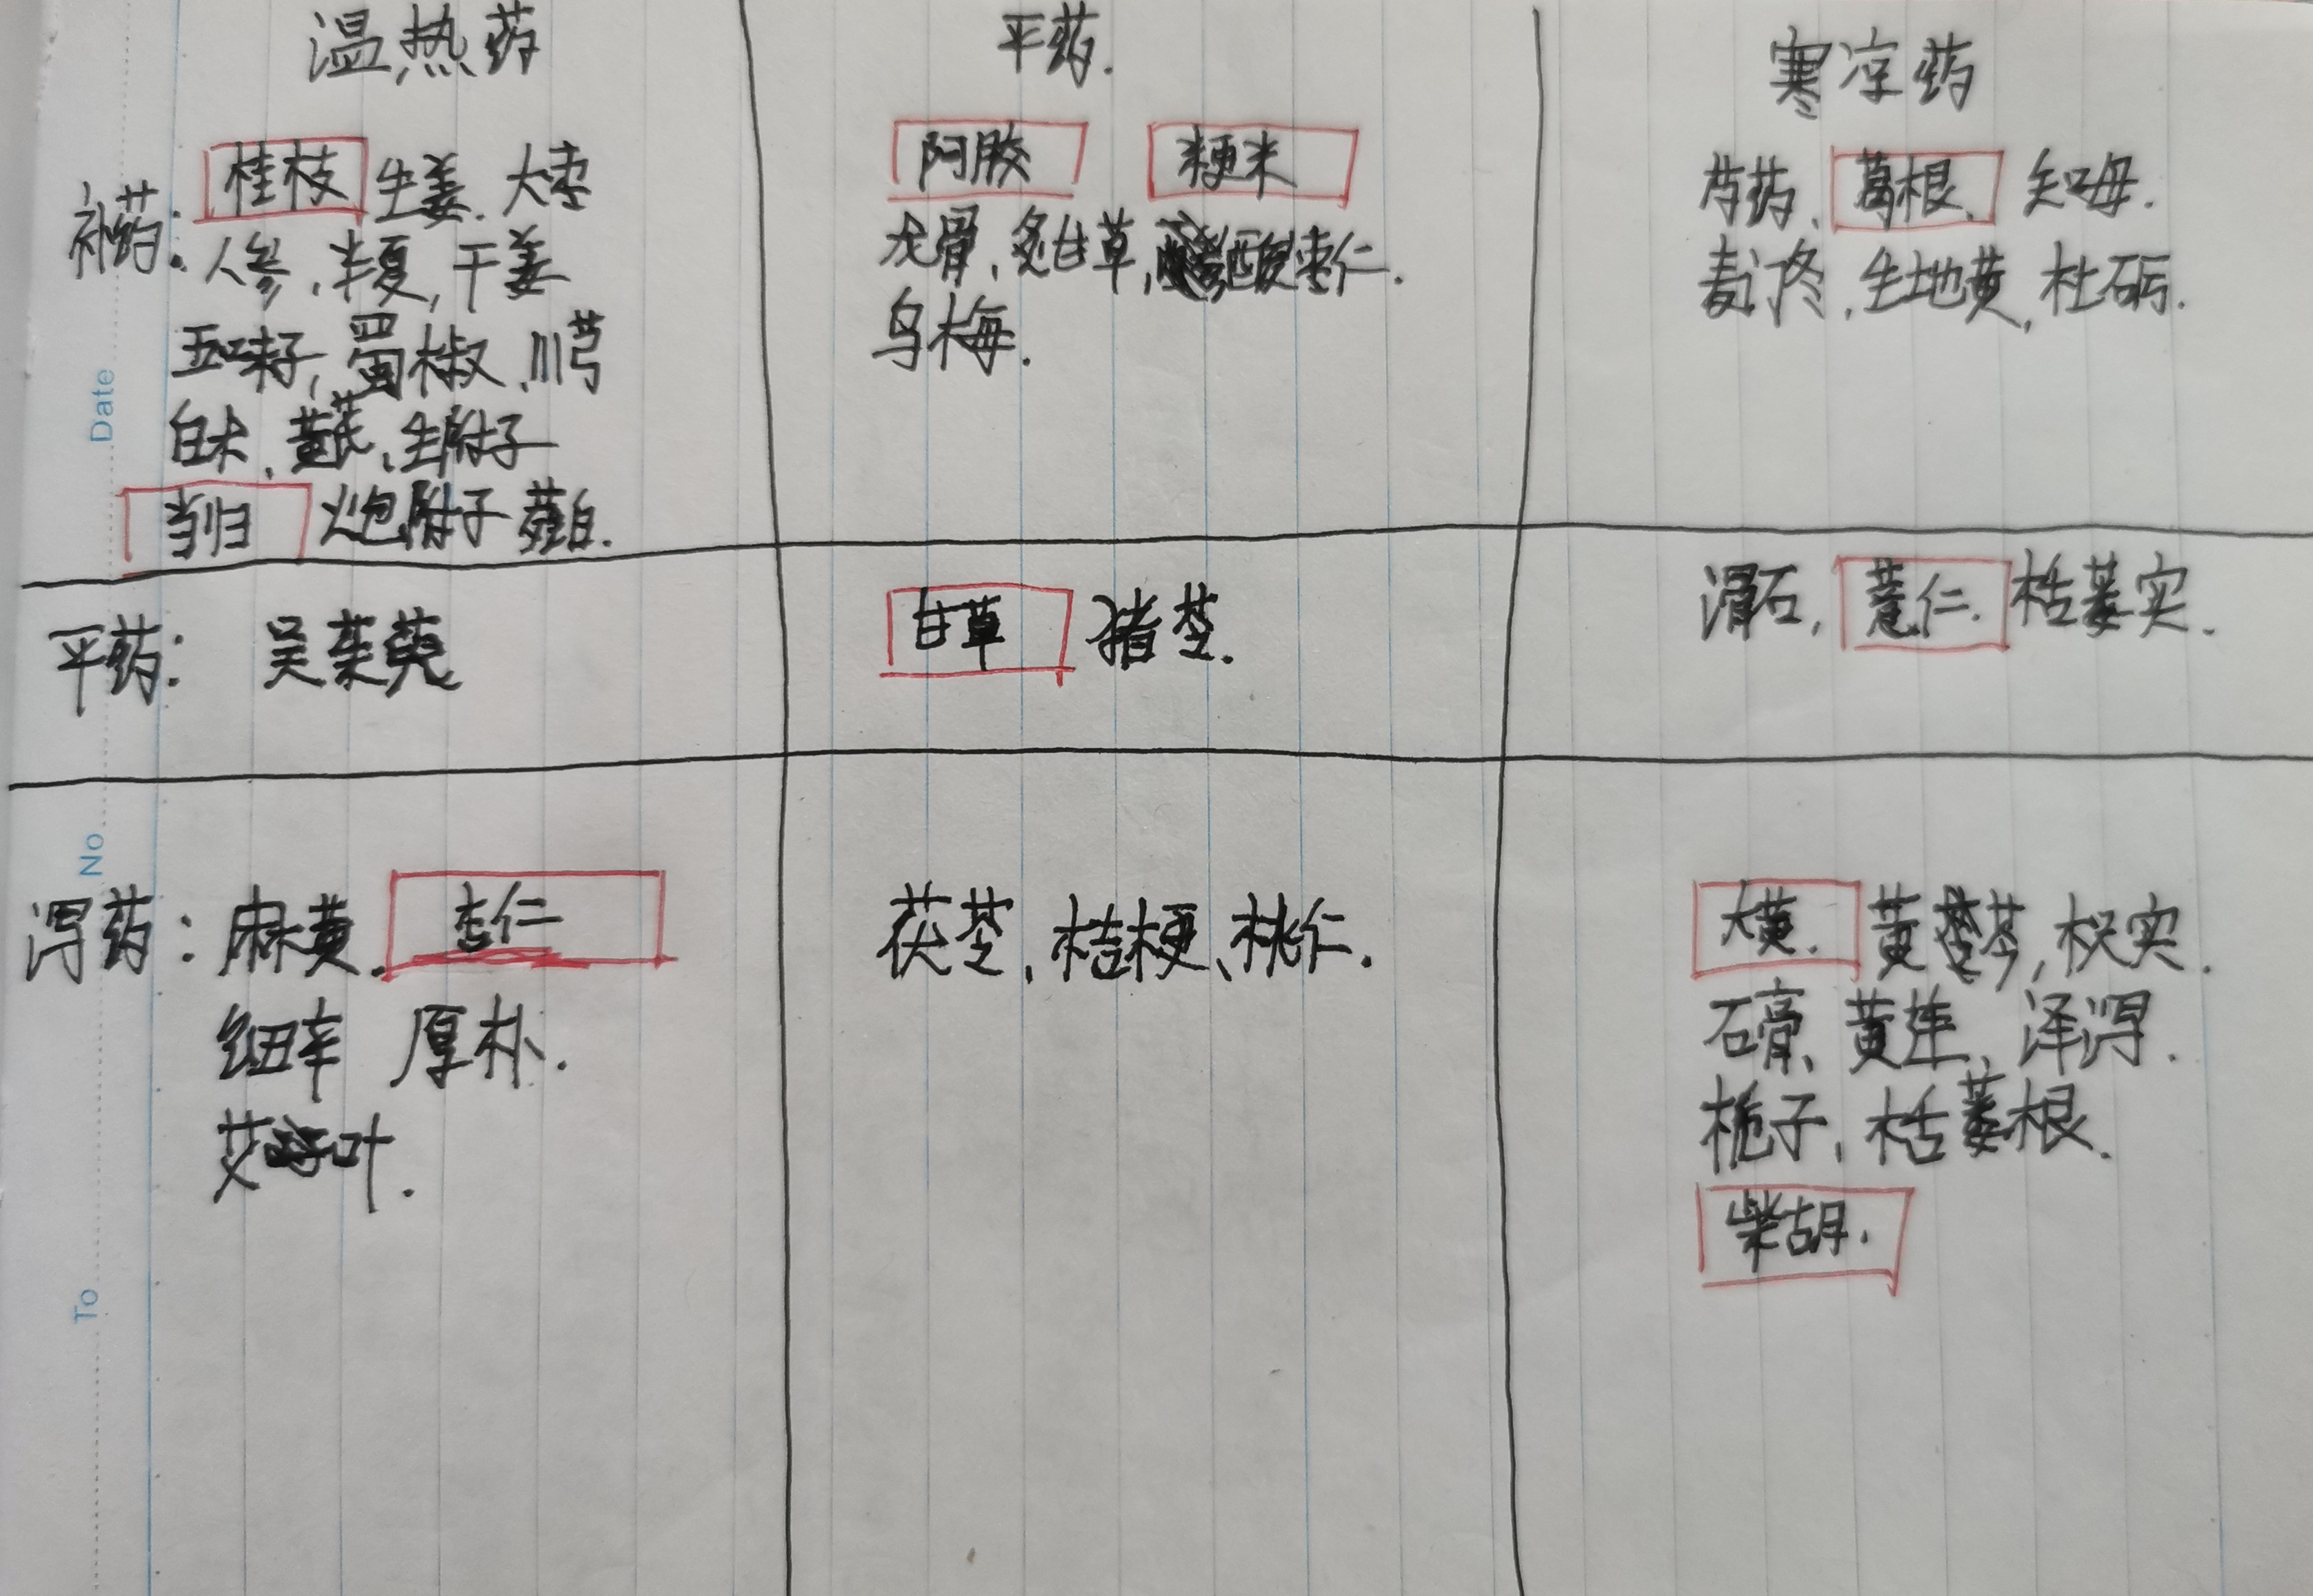 温热药
补药: 桂枝 生姜. 大枣
人参, 半夏, 干姜
五味子, 蜀椒, 川芎
白术, 黄芪, 生附子
当归 炮附子 薤白.
平药.
阿胶 粳米
龙骨, 炙甘草, 酸枣仁.
乌梅.
寒凉药
芍药, 葛根, 知母.
麦门冬, 生地黄, 杜砺.
平药: 吴茱萸
甘草 猪苓.
滑石, 薏仁. 栝蒌实.
泻药: 麻黄. 杏仁
细辛 厚朴.
艾叶.
茯苓, 桔梗, 桃仁.
大黄. 黄芩, 枳实.
石膏, 黄连, 泽泻.
栀子, 栝蒌根.
柴胡.
Date
No
To